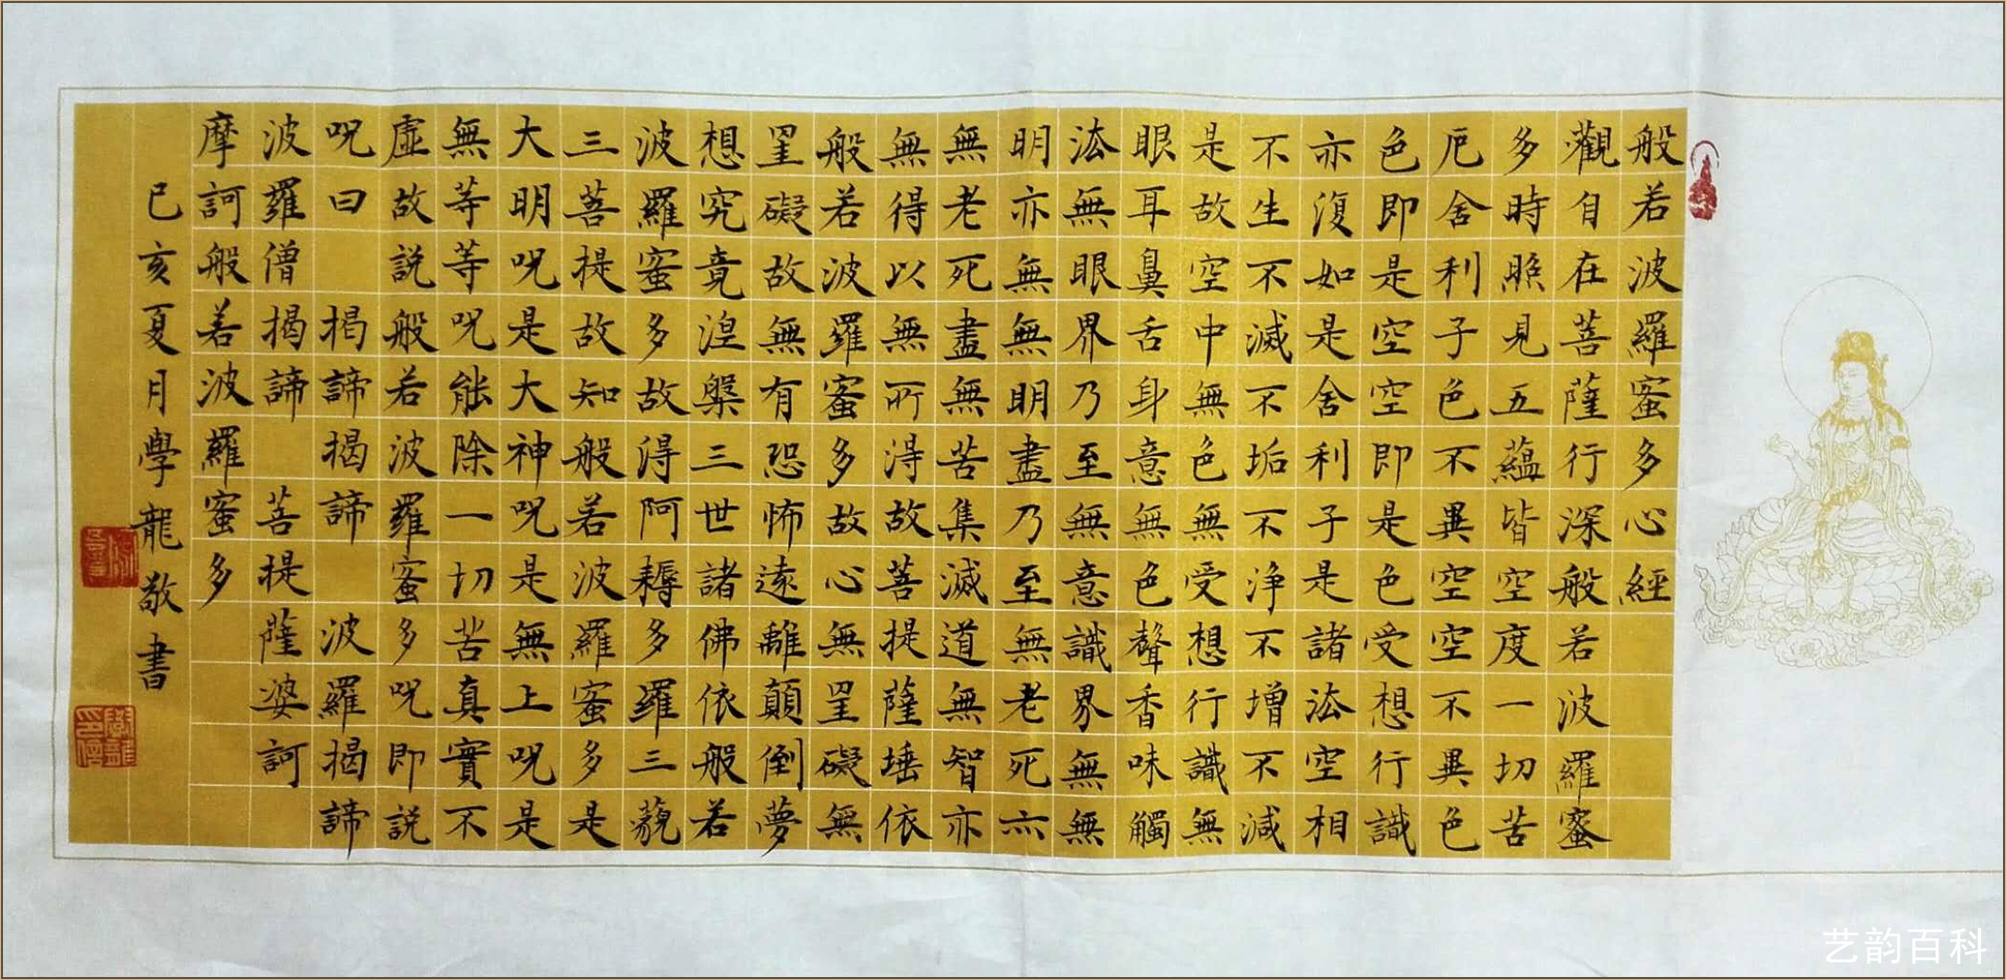 般若波羅蜜多心經
觀自在菩薩行深般若波羅蜜
多時照見五蘊皆空度一切苦
厄舍利子色不異空空不異色
色即是空空即是色受想行識
亦復如是舍利子是諸法空相
不生不滅不垢不淨不增不減
是故空中無色無受想行識無
眼耳鼻舌身意無色聲香味觸
法無眼界乃至無意識界無無
明亦無無明盡乃至無老死亦
無老死盡無苦集滅道無智亦
無得以無所得故菩提薩埵依
般若波羅蜜多故心無罣礙無
罣礙故無有恐怖遠離顛倒夢
想究竟涅槃三世諸佛依般若
波羅蜜多故得阿耨多羅三藐
三菩提故知般若波羅蜜多是
大明呪是大神呪是無上呪是
無等等呪能除一切苦真實不
虛故說般若波羅蜜多呪即說
呪曰 揭諦揭諦 波羅揭諦
波羅僧揭諦 菩提薩婆訶
摩訶般若波羅蜜多
已亥夏月學龍敬書
艺韵百科